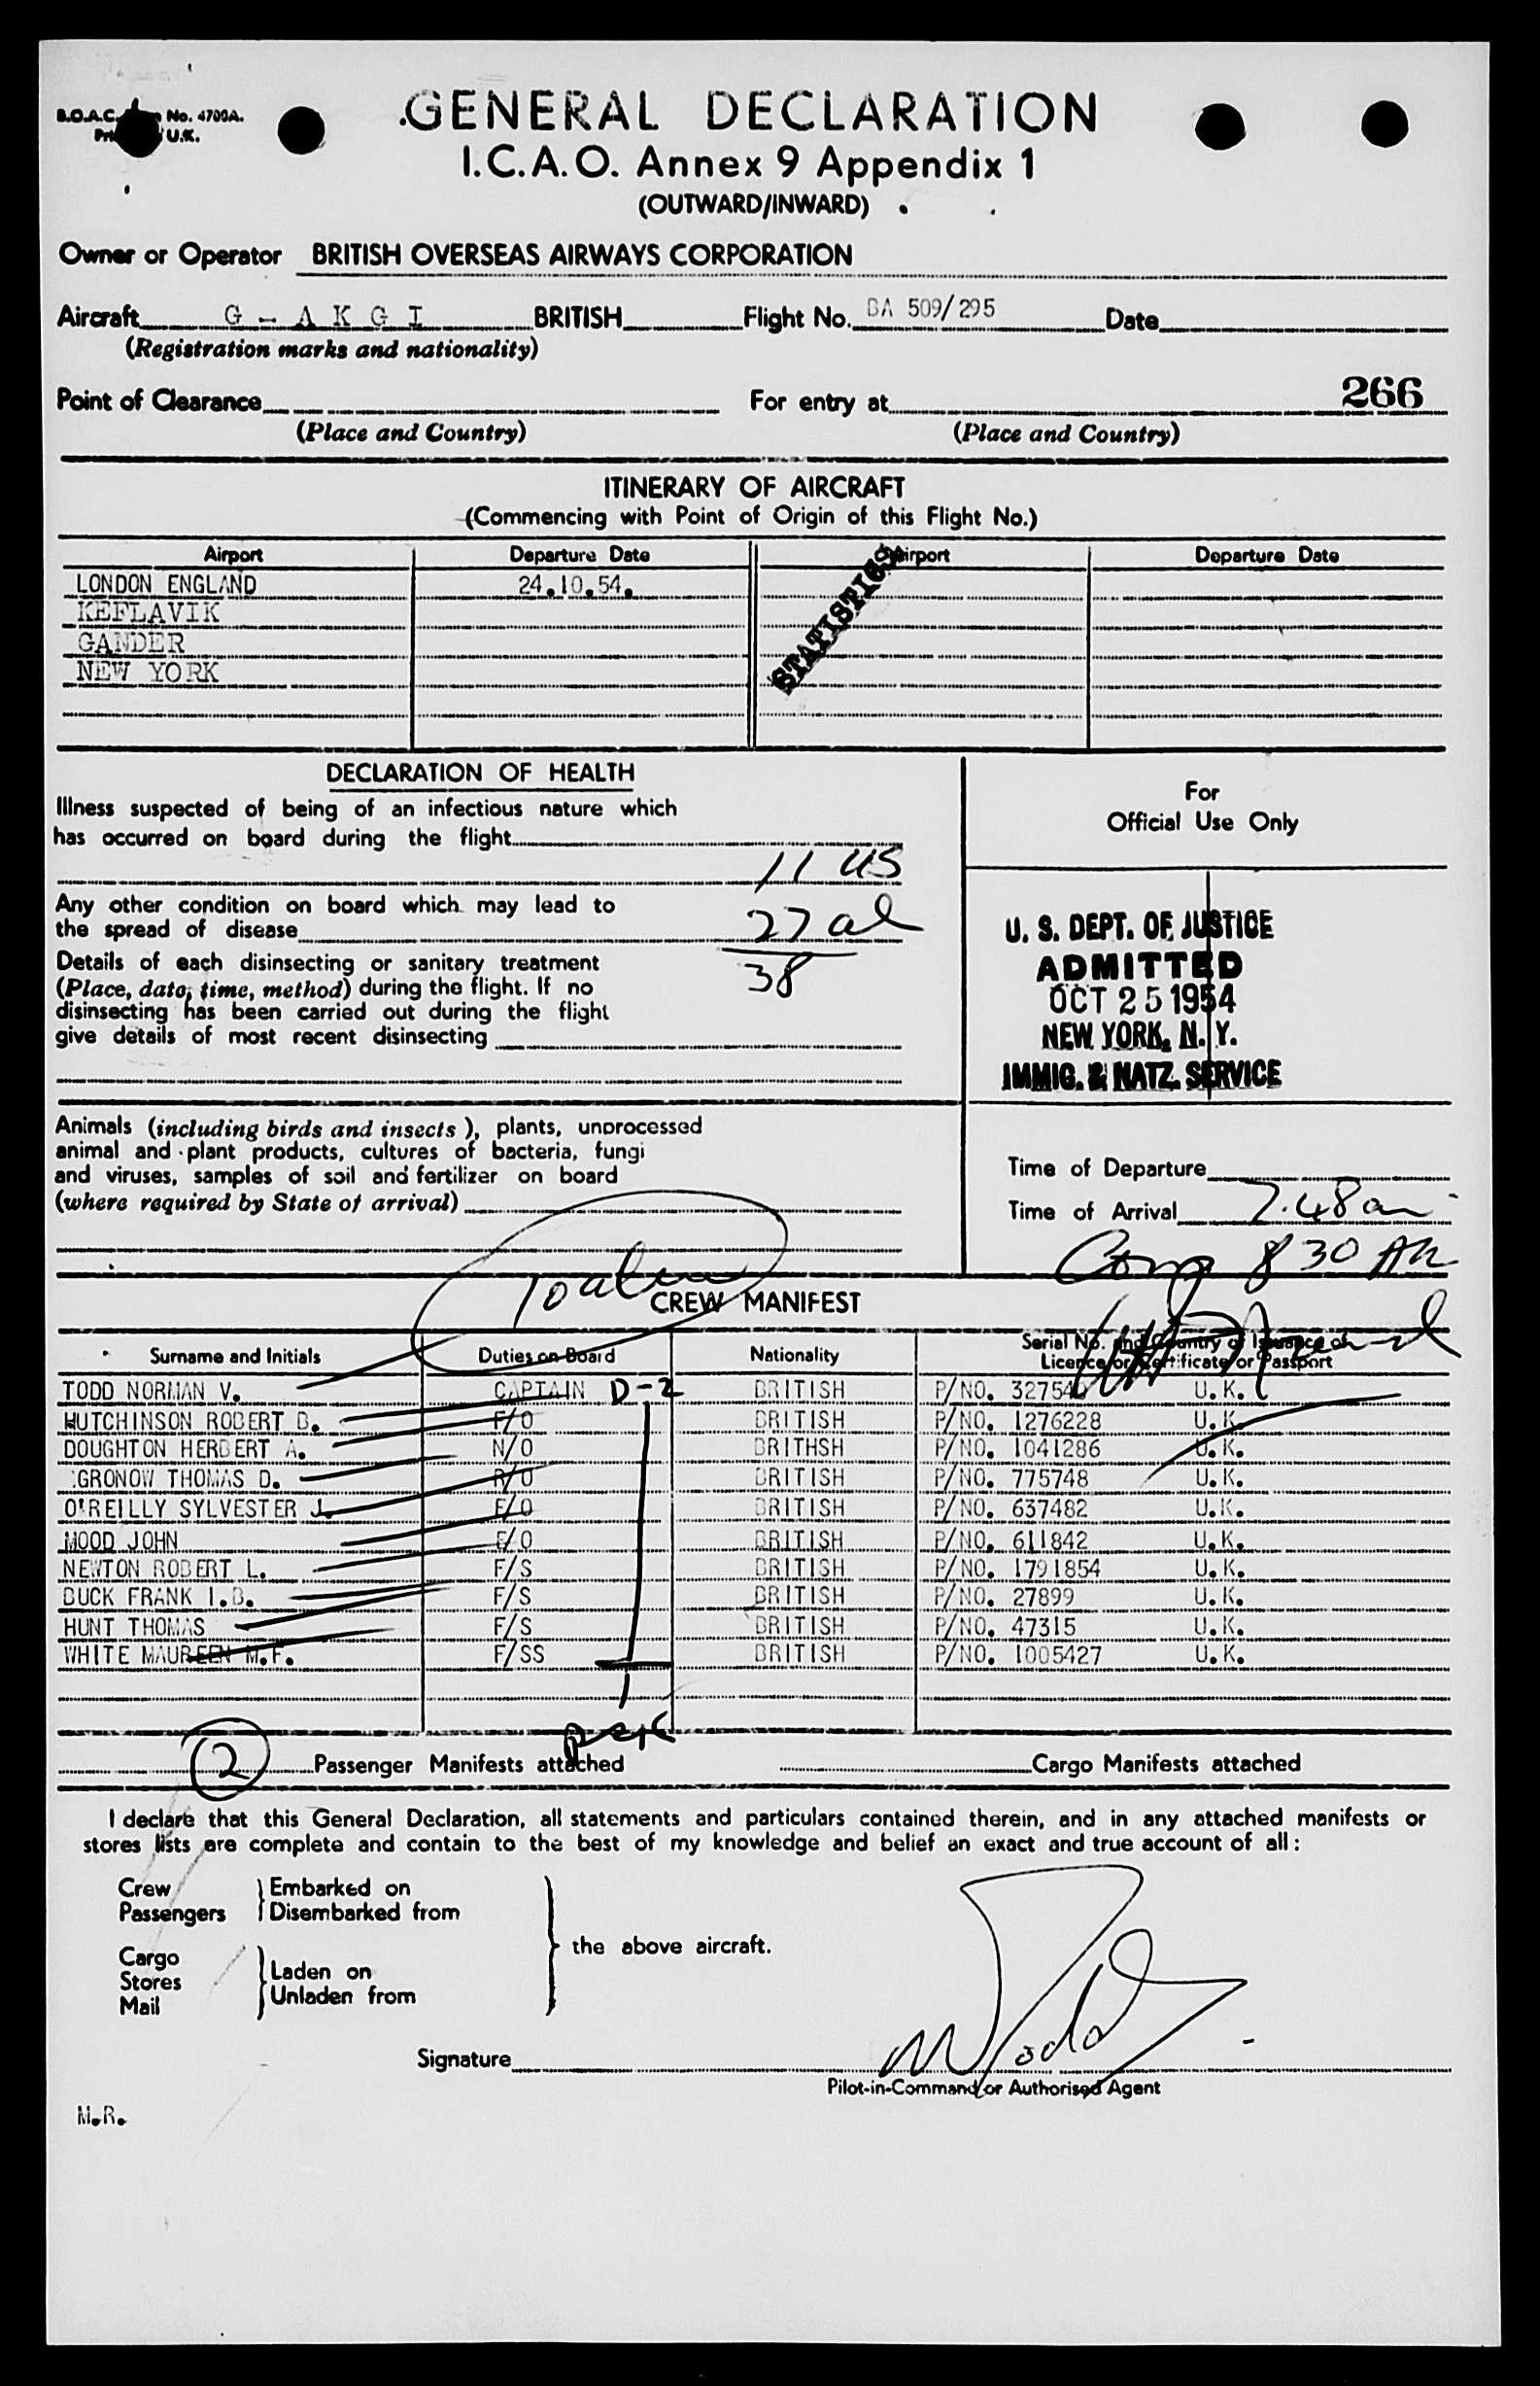 B.O.A.C. No. 4700A.
U.K.
GENERAL DECLARATION
I.C.A.O. Annex 9 Appendix 1
(OUTWARD/INWARD)
Owner or Operator BRITISH OVERSEAS AIRWAYS CORPORATION
Aircraft G - A K G I BRITISH Flight No. BA 509/295 Date
(Registration marks and nationality)
266
Point of Clearance For entry at
(Place and Country) (Place and Country)
ITINERARY OF AIRCRAFT
(Commencing with Point of Origin of this Flight No.)
Airport Departure Date Airport Departure Date
LONDON ENGLAND 24.10.54.
KEFLAVIK
GANDER
NEW YORK
STATISTICS
DECLARATION OF HEALTH
Illness suspected of being of an infectious nature which
has occurred on board during the flight
11 US
Any other condition on board which may lead to
the spread of disease
27 al
38
Details of each disinsecting or sanitary treatment
(Place, date, time, method) during the flight. If no
disinsecting has been carried out during the flight
give details of most recent disinsecting
For
Official Use Only
U. S. DEPT. OF JUSTICE
ADMITTED
OCT 25 1954
NEW YORK, N. Y.
IMMIG. & NATZ. SERVICE
Animals (including birds and insects), plants, unprocessed
animal and plant products, cultures of bacteria, fungi
and viruses, samples of soil and fertilizer on board
(where required by State of arrival)
Time of Departure
Time of Arrival 7.48 am
Comp 8 30 AM
CREW MANIFEST
Surname and Initials Duties on Board Nationality Serial No. and Country of Issuance of
Licence or Certificate or Passport
TODD NORMAN V. CAPTAIN D-2 BRITISH P/NO. 32754 U.K.
HUTCHINSON ROBERT B. F/O BRITISH P/NO. 1276228 U.K.
DOUGHTON HERBERT A. N/O BRITHSH P/NO. 1041286 U.K.
GRONOW THOMAS D. R/O BRITISH P/NO. 775748 U.K.
O'REILLY SYLVESTER J. E/O BRITISH P/NO. 637482 U.K.
MOOD JOHN E/O BRITISH P/NO. 611842 U.K.
NEWTON ROBERT L. F/S BRITISH P/NO. 1791854 U.K.
BUCK FRANK I.B. F/S BRITISH P/NO. 27899 U.K.
HUNT THOMAS F/S BRITISH P/NO. 47315 U.K.
WHITE MAUREEN M.F. F/SS BRITISH P/NO. 1005427 U.K.
2 Passenger Manifests attached Cargo Manifests attached
I declare that this General Declaration, all statements and particulars contained therein, and in any attached manifests or
stores lists are complete and contain to the best of my knowledge and belief an exact and true account of all:
Crew Embarked on
Passengers Disembarked from
the above aircraft.
Cargo
Stores Laden on
Mail Unladen from
Signature N Todd
Pilot-in-Command or Authorised Agent
M.R.